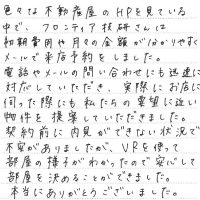 色々な不動産屋のHPを見ている
中で、フロンティア技研さんは
初期費用や月々の金額が分かりやすく
メールで来店予約をしました。
電話やメールの問い合わせにも迅速に
対応していただき、実際にお店に
伺った際にも私たちの要望に近い
物件を提案していただきました。
契約前に内見ができない状況で
不安がありましたが、VRを使って
部屋の様子がわかったので安心して
部屋を決めることができました。
本当にありがとうございました。